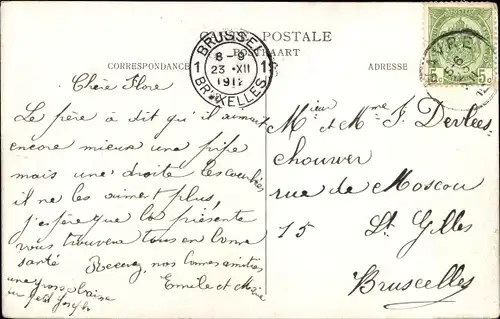 CARTE POSTALE
POSTKAART
CORRESPONDANCE
ADRESSE
BRUSSEL
1 8-9 1
23 XII
1912
BRUXELLES
5c 5c
Chère Flore
Le père à dit qu'il aimait
encore mieux une pipe
mais une droite les courbées
il ne les aiment plus,
j'espère que la présente
vous trouvera tous en bonne
santé Recevez, nos bonnes amitiés
Emile et
une gros baise
au petit
Mieur et Mme F. Devlees-
chouwer
rue de Moscou
15 St Gilles
Bruscelles